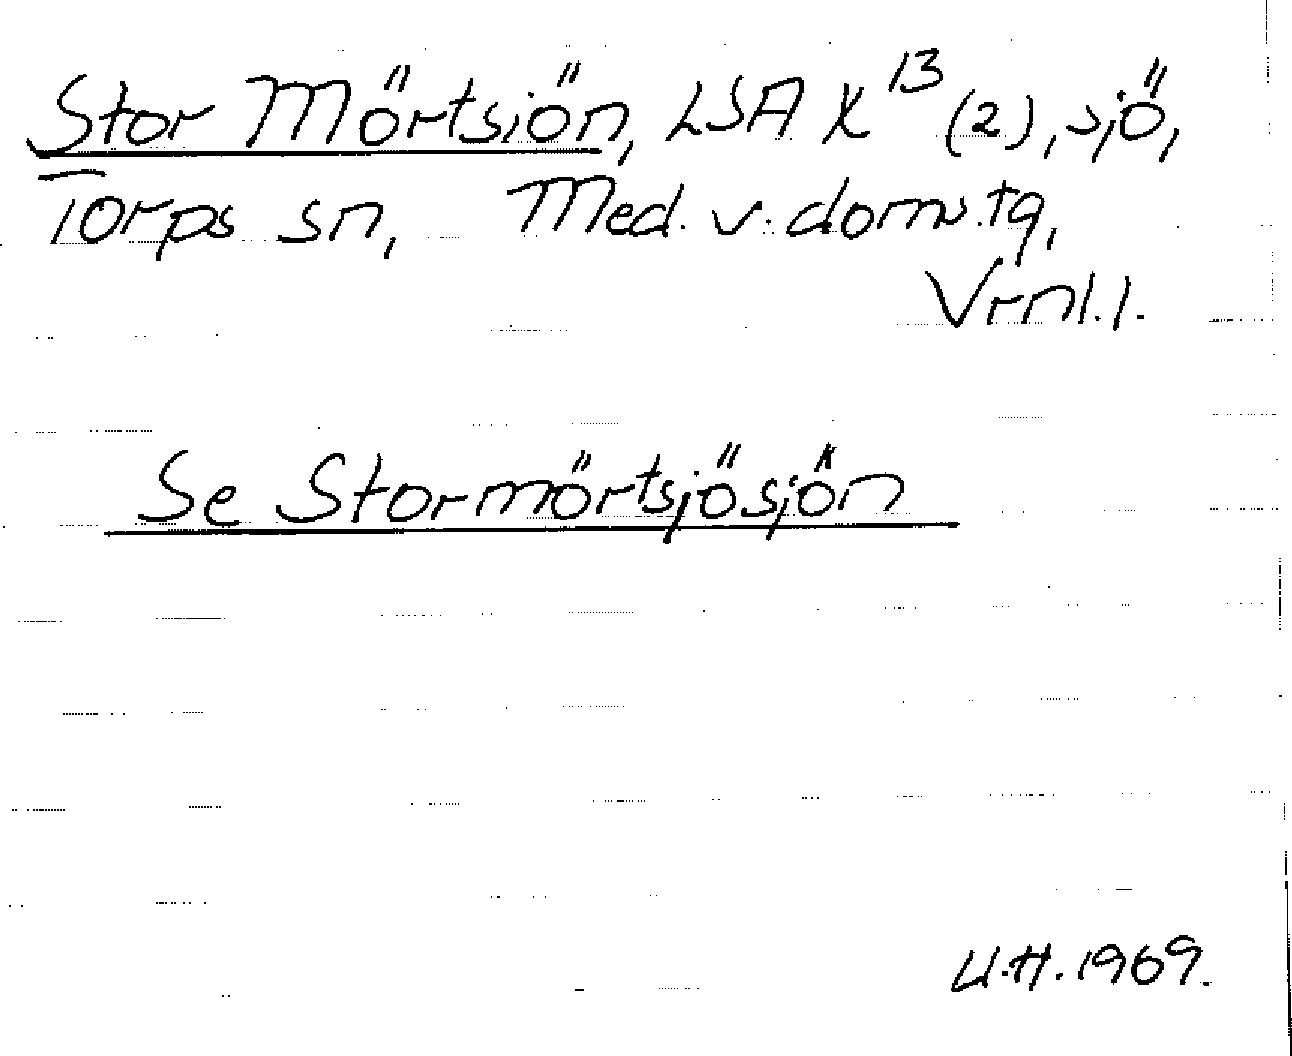 Stor Mörtsiön, LSA X 13 (2), sjö,
Torps sn, Med. v. doms.tg,
Vrnl. l.
Se Stormörtsjösjön
U.H. 1969.